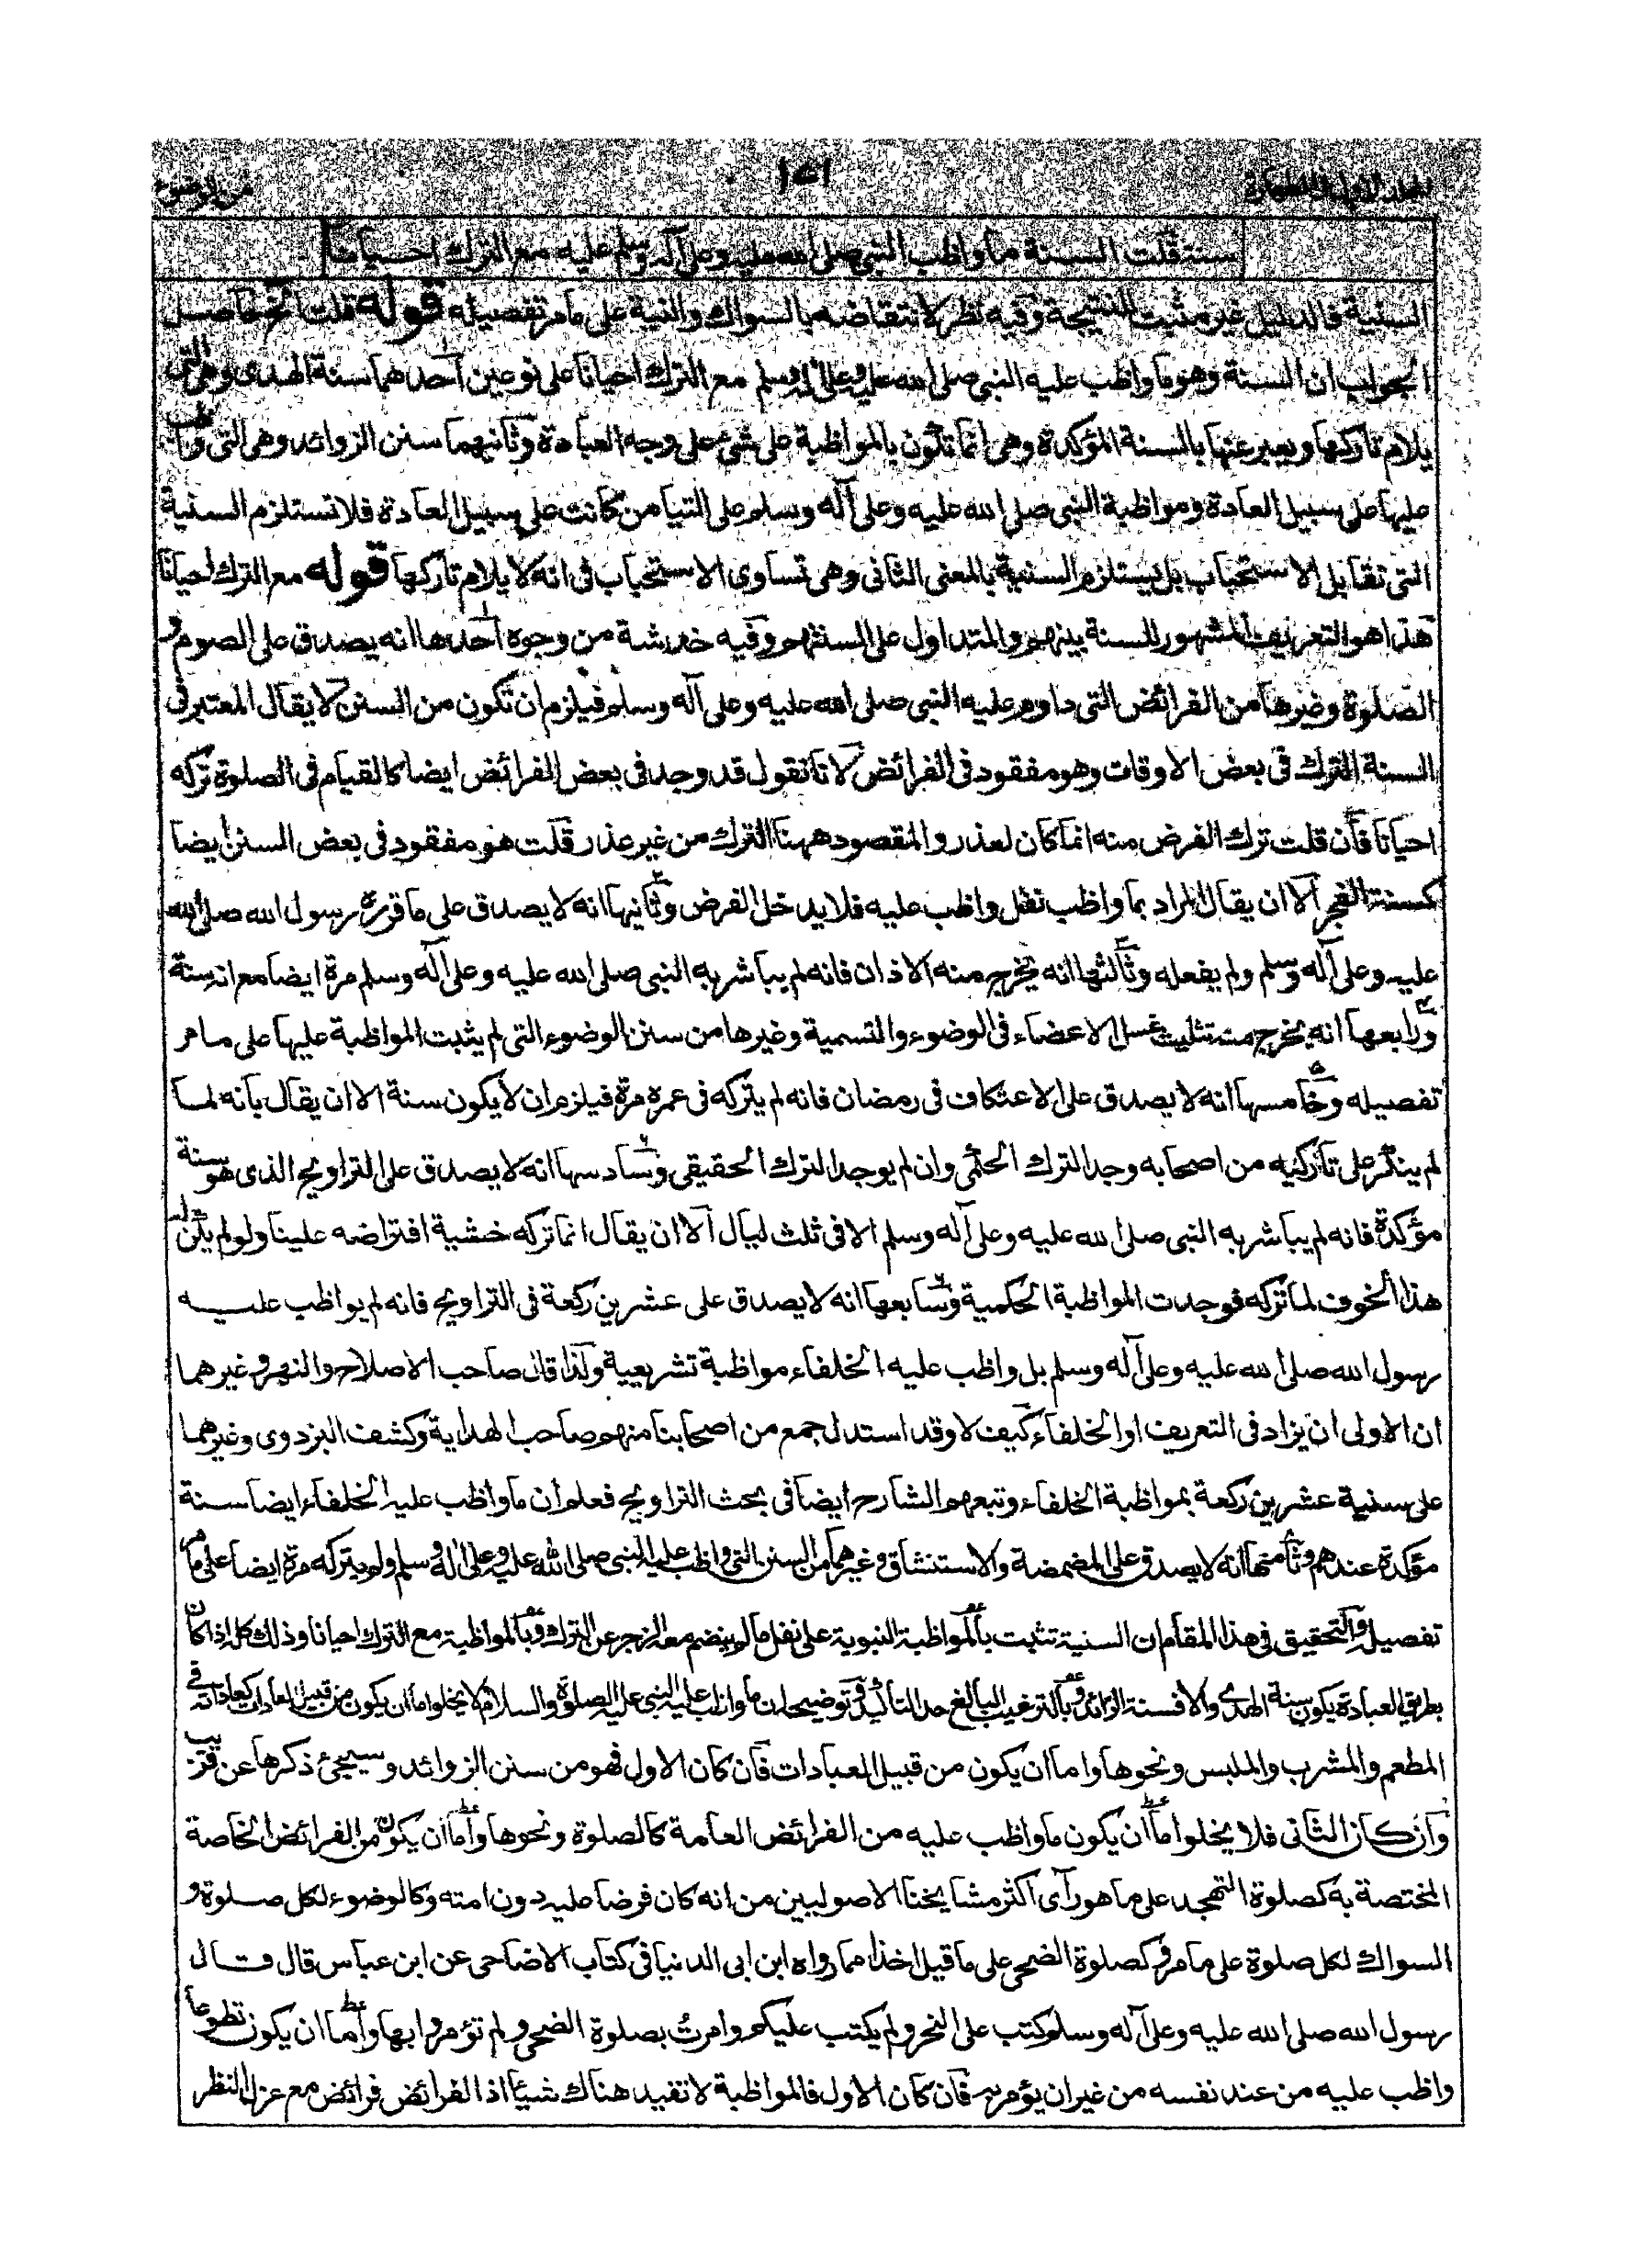 المجلد الاول من الطهارة ١٥١ من الوضوء
سنة قلت السنة ما واظب النبي صلى الله عليه وعلى آله وسلم عليه مع الترك احيانا
السنية فالدليل غير مثبت للنتيجة وفيه نظر لانتقاضه بالسواك والنية على ما مر تفصيله قوله قلت الخ حاصل
الجواب ان السنة وهو ما واظب عليه النبي صلى الله عليه وعلى آله وسلم مع الترك احيانا على نوعين احدهما سنة الهدى وهى التى
يلام تاركها ويعبر عنها بالسنة المؤكدة وهى انما تكون بالمواظبة على شئ على وجه العبادة وثانيهما سنن الزوائد وهى التى واظب
عليها على سبيل العادة ومواظبة النبى صلى الله عليه وعلى آله وسلم على التيامن كانت على سبيل العادة فلا تستلزم السنية
التى تقابل الاستحباب بل يستلزم السنية بالمعنى الثانى وهى تساوى الاستحباب فى انه لا يلام تاركها قوله مع الترك احيانا
هذا هو التعريف المشهور للسنة بينهم والمتداول على السنتهم وفيه خدشة من وجوه احدها انه يصدق على الصوم و
الصلوة وغيرها من الفرائض التى داوم عليه النبى صلى الله عليه وعلى آله وسلم فيلزم ان تكون من السنن لا يقال المعتبر فى
السنة الترك فى بعض الاوقات وهو مفقود فى الفرائض لانا نقول قد وجد فى بعض الفرائض ايضا كالقيام فى الصلوة تركه
احيانا فان قلت ترك الفرض منه انما كان لعذر والمقصود ههنا الترك من غير عذر قلت هو مفقود فى بعض السنن ايضا
كسنة الفجر الا ان يقال المراد بما واظب نفل واظب عليه فلا يدخل الفرض وثانيها انه لا يصدق على ما قرره رسول الله صلى الله
عليه وعلى آله وسلم ولم يفعله وثالثها انه يخرج منه الاذان فانه لم يباشر به النبى صلى الله عليه وعلى آله وسلم مرة ايضا مع انه سنة
ورابعها انه يخرج منه تثليث غسل الاعضاء فى الوضوء والتسمية وغيرها من سنن الوضوء التى لم يثبت المواظبة عليها على ما مر
تفصيله وخامسها انه لا يصدق على الاعتكاف فى رمضان فانه لم يتركه فى عمره مرة فيلزم ان لا يكون سنة الا ان يقال بانه لما
لم ينكر على تاركيه من اصحابه وجد الترك الحكمى وان لم يوجد الترك الحقيقى وسادسها انه لا يصدق على التراويح الذى هو سنة
مؤكدة فانه لم يباشر به النبى صلى الله عليه وعلى آله وسلم الا فى ثلث ليال الا ان يقال انما تركه خشية افتراضه علينا ولو لم يكن له
هذا الخوف لما تركه فوجدت المواظبة الحكمية وسابعها انه لا يصدق على عشرين ركعة فى التراويح فانه لم يواظب عليه
رسول الله صلى الله عليه وعلى آله وسلم بل واظب عليه الخلفاء مواظبة تشريعية ولذا قال صاحب الاصلاح والنهر وغيرهما
ان الاولى ان يزاد فى التعريف او الخلفاء كيف لا وقد استدل جمع من اصحابنا منهم صاحب الهداية وكشف البزدوى وغيرهما
على سنية عشرين ركعة بمواظبة الخلفاء وتبعهم الشارح ايضا فى بحث التراويح فعلم ان ما واظب عليه الخلفاء ايضا سنة
مؤكدة عندهم وثامنها انه لا يصدق على المضمضة والاستنشاق وغيرهما من السنن التى واظب عليه النبى صلى الله عليه وعلى آله وسلم ولم يتركه مرة ايضا على ما مر
تفصيله والتحقيق فى هذا المقام ان السنية تثبت بالمواظبة النبوية على نفل ما لم ينضم معه الزجر عن الترك وبالمواظبة مع الترك احيانا وذلك كله اذا كان
بطريق العبادة يكون سنة الهدى والا فسنة الزائد وبالترغيب البالغ حد التأكيد وتوضيحه ان ما واظب عليه النبى عليه الصلوة والسلام لا يخلو اما ان يكون من قبيل العادات كعاداته فى
المطعم والمشرب والملبس ونحوها واما ان يكون من قبيل العبادات فان كان الاول فهو من سنن الزوائد وسيجئ ذكرها عن قريب
وان كان الثانى فلا يخلوا اما ان يكون ما واظب عليه من الفرائض العامة كالصلوة ونحوها واما ان يكون من الفرائض الخاصة
المختصة به كصلوة التهجد على ما هو رأى اكثر مشايخنا الاصوليين من انه كان فرضا عليه دون امته وكالوضوء لكل صلوة و
السواك لكل صلوة على ما مر وكصلوة الضحى على ما قيل اخذا مما رواه ابن ابى الدنيا فى كتاب الاضاحى عن ابن عباس قال قال
رسول الله صلى الله عليه وعلى آله وسلم كتب على النحر ولم يكتب عليكم وامرت بصلوة الضحى ولم تؤمروا بها واما ان يكون تطوعا
واظب عليه من عند نفسه من غير ان يؤمر به فان كان الاول فالمواظبة لا تفيد هناك شيئا اذ الفرائض فرائض مع عزل النظر